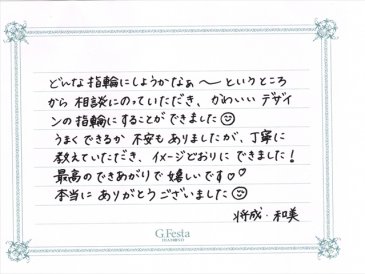 どんな指輪にしようかなぁ〜というところ
から相談にのっていただき、かわいいデザイ
ンの指輪にすることができました☺
うまくできるか不安もありましたが、丁寧に
教えていただき、イメージどおりにできました!
最高のできあがりで嬉しいです♡♡
本当にありがとうございました☺
将成・和美
G.Festa